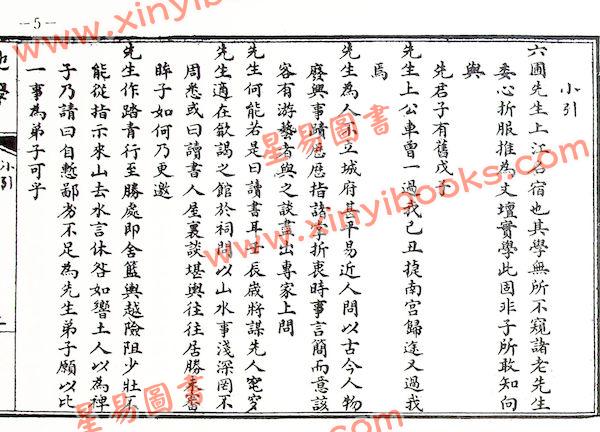 —5—
小引
六圃先生上江名宿也其學無所不窺諸老先生
委心折服推為文壇實學此固非子所敢知向
與
先君子有舊戊子
先生上公車曾一過我己丑捷南宮歸途又過我
焉
先生為人不立城府甚平易近人問以古今人物
廢興事蹟歷歷指諸掌折衷時事言簡而意該
容有游藝者與之談輩出專家上問
先生何能若是曰讀書耳壬辰歲將謀先人窀穸
先生適在歙謁之館於祠問以山水事淺深罔不
周悉或曰讀書人屋裏談堪輿往往居勝未審
眸子如何乃更邀
先生作踏青行至勝處即舍籃輿越險阻少壯不
能從指示來山去水言休咎如響土人以為禪
子乃請曰自慙鄙劣不足為先生弟子願以比
一事為弟子可乎
小引
www.xinyibooks.com
星易圖書
www.xinyibooks.com
星易圖書
www.xinyibooks.com
星易圖書